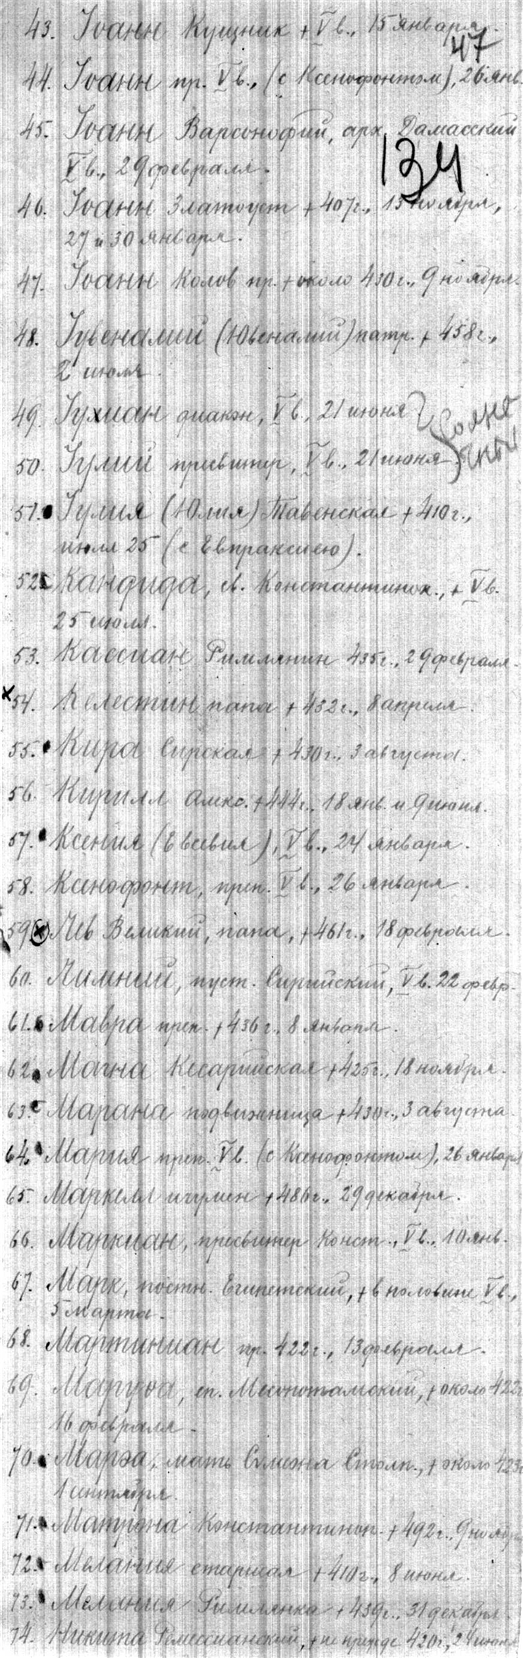 43. Іоанн Кущник + V в., 15 января.
47
44. Іоанн пр. V в., (с Ксенофонтом), 26 янв.
45. Іоанн Варсонофий, арх. Дамасский
V в., 29 февраля.
134
46. Іоанн Златоуст + 407 г., 13 ноября,
27 и 30 января.
47. Іоанн Колов пр. + около 430 г., 9 ноября.
48. Іувеналий (Ювеналий) патр. + 458 г.,
2 июля.
49. Іулиан диакон, V в., 21 июня
50. Іулий пресвитер, V в., 21 июня
51. Іулия (Юлия) Тавенская + 410 г.,
июля 25 (с Евпраксиею).
52. Кандида, м. Константиноп., + V в.
25 июля.
53. Кассиан Римлянин 435 г., 29 февраля.
x 54. Келестин папа + 432 г., 8 апреля.
55. Кира Сирская + 430 г., 3 августа.
56. Кирилл Алекс. + 444 г., 18 янв. и 9 июня.
57. Ксения (Евсевия), V в., 24 января.
58. Ксенофонт, преп. V в., 26 января.
59. x Лев Великий, папа, + 461 г., 18 февраля.
60. Лимний, пуст. Сирийский, V в. 22 февр.
61. Мавра преп. + 436 г., 8 января.
62. Магна Кесарийская + 425 г., 18 ноября.
63. Марана подвижница + 430 г., 3 августа.
64. Мария преп. V в. (с Ксенофонтом), 26 января
65. Маркелл игумен + 486 г., 29 декабря.
66. Маркиан, пресвитер Конст., V в., 10 янв.
67. Марк, постн. Египетский, + в половине V в.,
5 марта.
68. Мартиниан пр. 422 г., 13 февраля.
69. Маруѳа, еп. Месопотамский, + около 422 г
16 февраля.
70. Марѳа, мать Симеона Столп., + около
1 сентября.
71. Матрона Константиноп. + 492 г., 9 ноября
72. Мелания старшая + 410 г., 8 июня.
73. Мелания Римлянка + 439 г., 31 декабря.
74. Никита Ремессианский, + не прежде 420 г., 24 июня